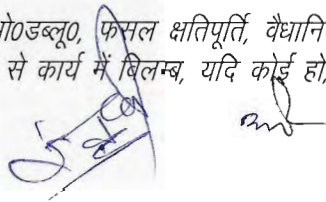 ओ०डब्लू०, फसल क्षतिपूर्ति, वैधानि
से कार्य में बिलम्ब, यदि कोई हो,